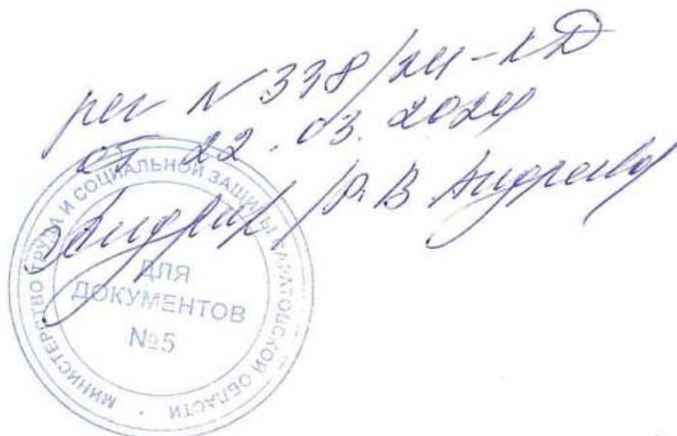 рег N 338/24-КД
от 22.03.2024
/О.В. Андреева
МИНИСТЕРСТВО ТРУДА И СОЦИАЛЬНОЙ ЗАЩИТЫ САРАТОВСКОЙ ОБЛАСТИ
ДЛЯ
ДОКУМЕНТОВ
№5